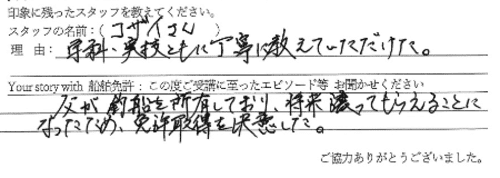 印象に残ったスタッフを教えてください。
スタッフの名前：（ コザイさん ）
理 由： 学科・実技ともに丁寧に教えていただけた。
Your story with 船舶免許：この度ご受講に至ったエピソード等 お聞かせください
父が釣船を所有しており、将来譲ってもらえることに
なったため、免許取得を決意した。
ご協力ありがとうございました。